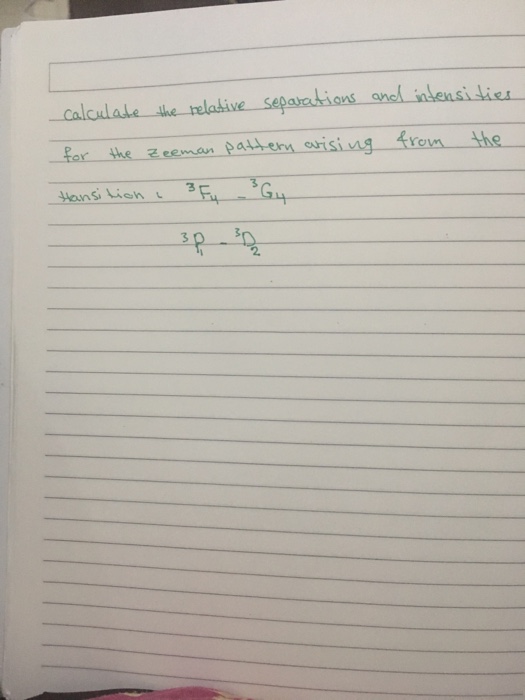 calculate the relative separations and intensities
for the zeeman pattern arising from the
transition : ³F₄ - ³G₄
³P₁ - ³D₂